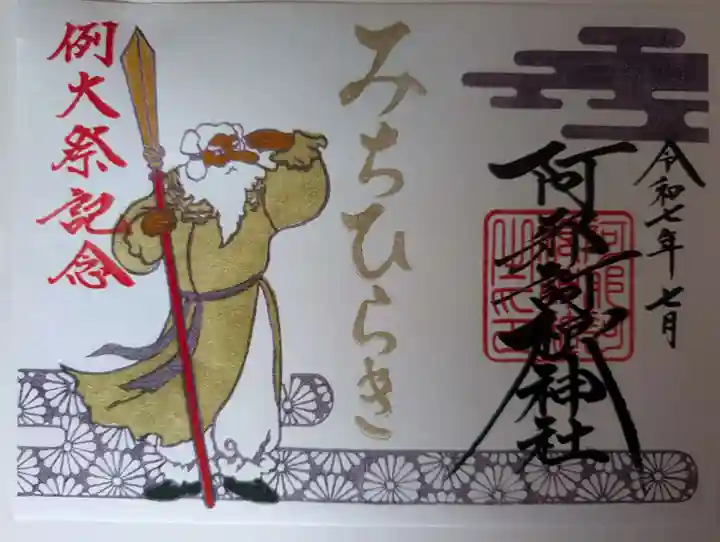 令和七年 七月
阿邪訶根神社
みちひらき
例大祭記念